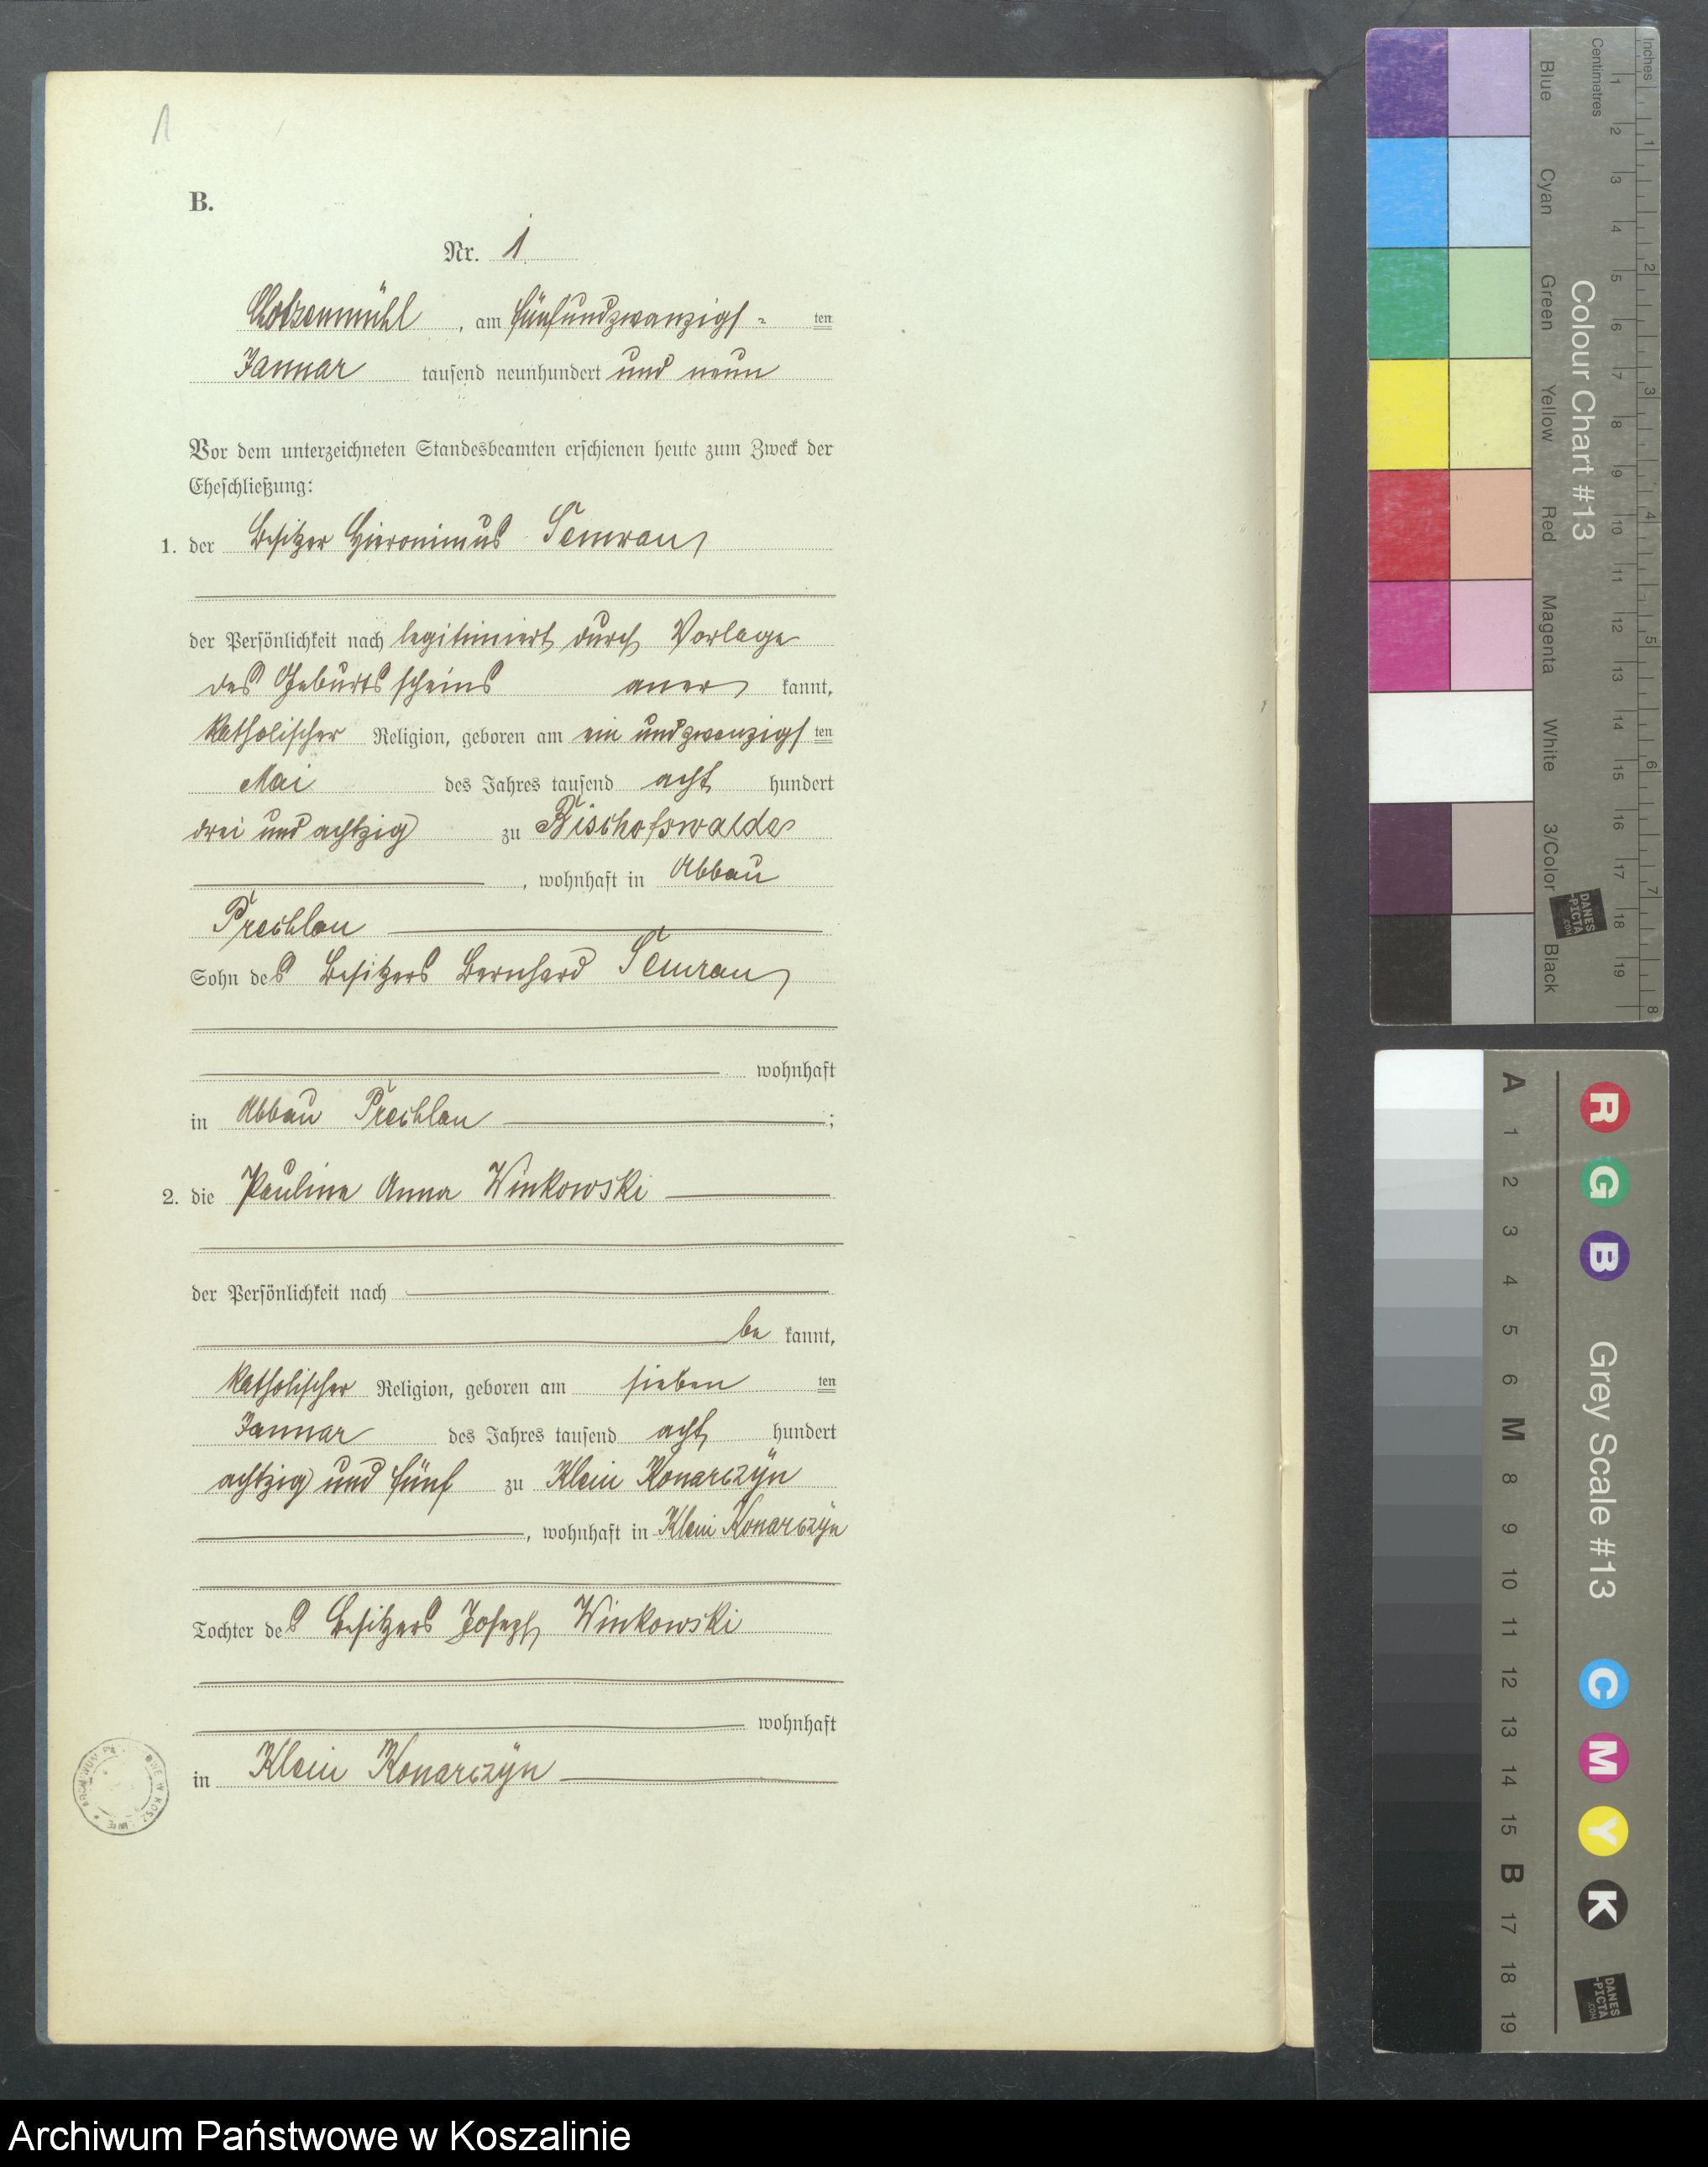 1
B.
Nr. 1
Chotzenmühl, am fünfundzwanzigs- ten
Januar tausend neunhundert und neun
Vor dem unterzeichneten Standesbeamten erschienen heute zum Zweck der
Eheschließung:
1. der Besitzer Hieronimus Semrau,
der Persönlichkeit nach legitimiert durch Vorlage
des Geburtsscheins aner kannt,
katholischer Religion, geboren am ein und zwanzigs ten
Mai des Jahres tausend acht hundert
drei und achtzig zu Bischofswalde
, wohnhaft in Abbau
Prechlau
Sohn des Besitzers Bernhard Semrau,
wohnhaft
in Abbau Prechlau ;
2. die Pauline Anna Winkowski
der Persönlichkeit nach
be kannt,
katholischer Religion, geboren am sieben ten
Januar des Jahres tausend acht hundert
achtzig und fünf zu Klein Konarczyn
, wohnhaft in Klein Konarczyn
Tochter des Besitzers Joseph Winkowski
wohnhaft
in Klein Konarczyn
Colour Chart #13
Inches 1 2 3 4 5 6 7 8
Centimetres 1 2 3 4 5 6 7 8 9 10 11 12 13 14 15 16 17 18 19
Blue Cyan Green Yellow Red Magenta White 3/Color Black
DANES
-PICTA
.COM
Grey Scale #13
A 1 2 3 4 5 6 M 8 9 10 11 12 13 14 15 B 17 18 19
R G B C M Y K
DANES
-PICTA
.COM
Archiwum Państwowe w Koszalinie